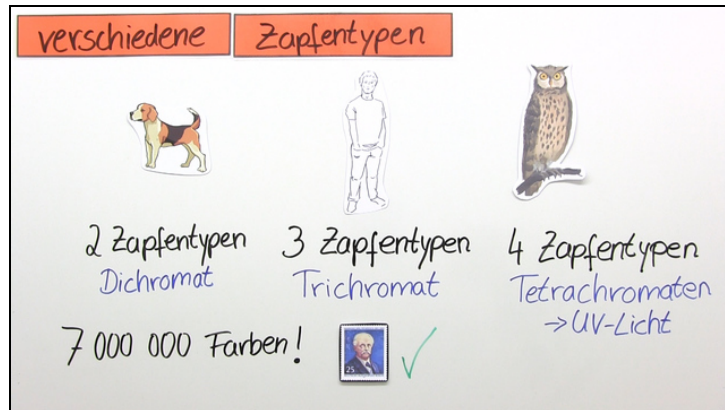 verschiedene Zapfentypen
2 Zapfentypen
Dichromat
3 Zapfentypen
Trichromat
4 Zapfentypen
Tetrachromaten
→UV-Licht
7 000 000 Farben!
25